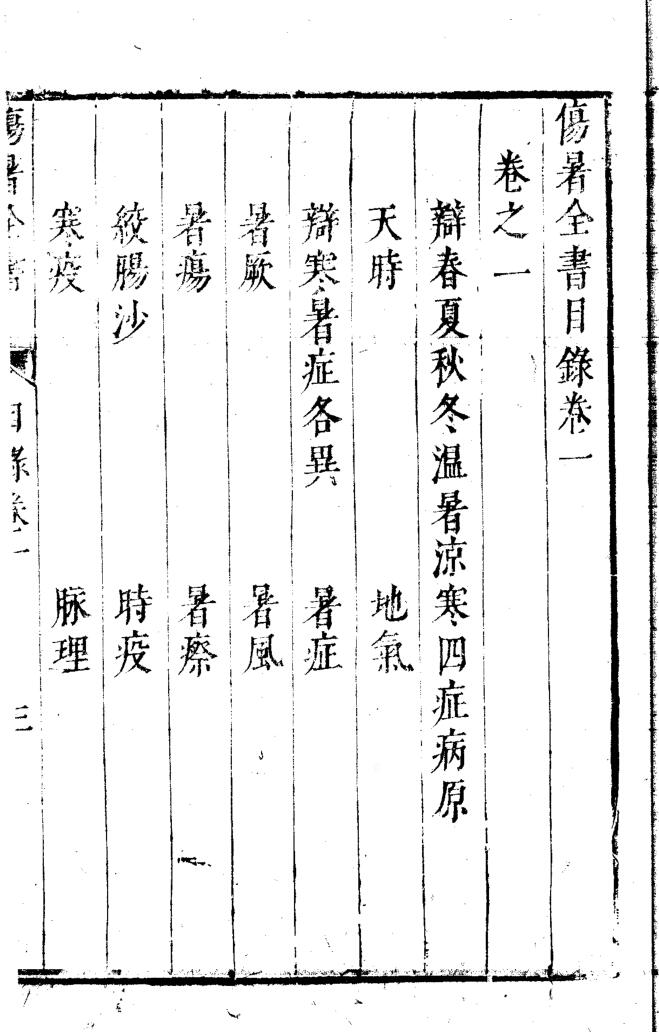 傷暑全書目錄卷一
卷之一
辯春夏秋冬温暑涼寒四症病原
天時 地氣
辯寒暑症各異 暑症
暑厥 暑風
暑瘍 暑瘵
絞腸沙 時疫
寒疫 脉理
傷暑全書 目錄卷一 三